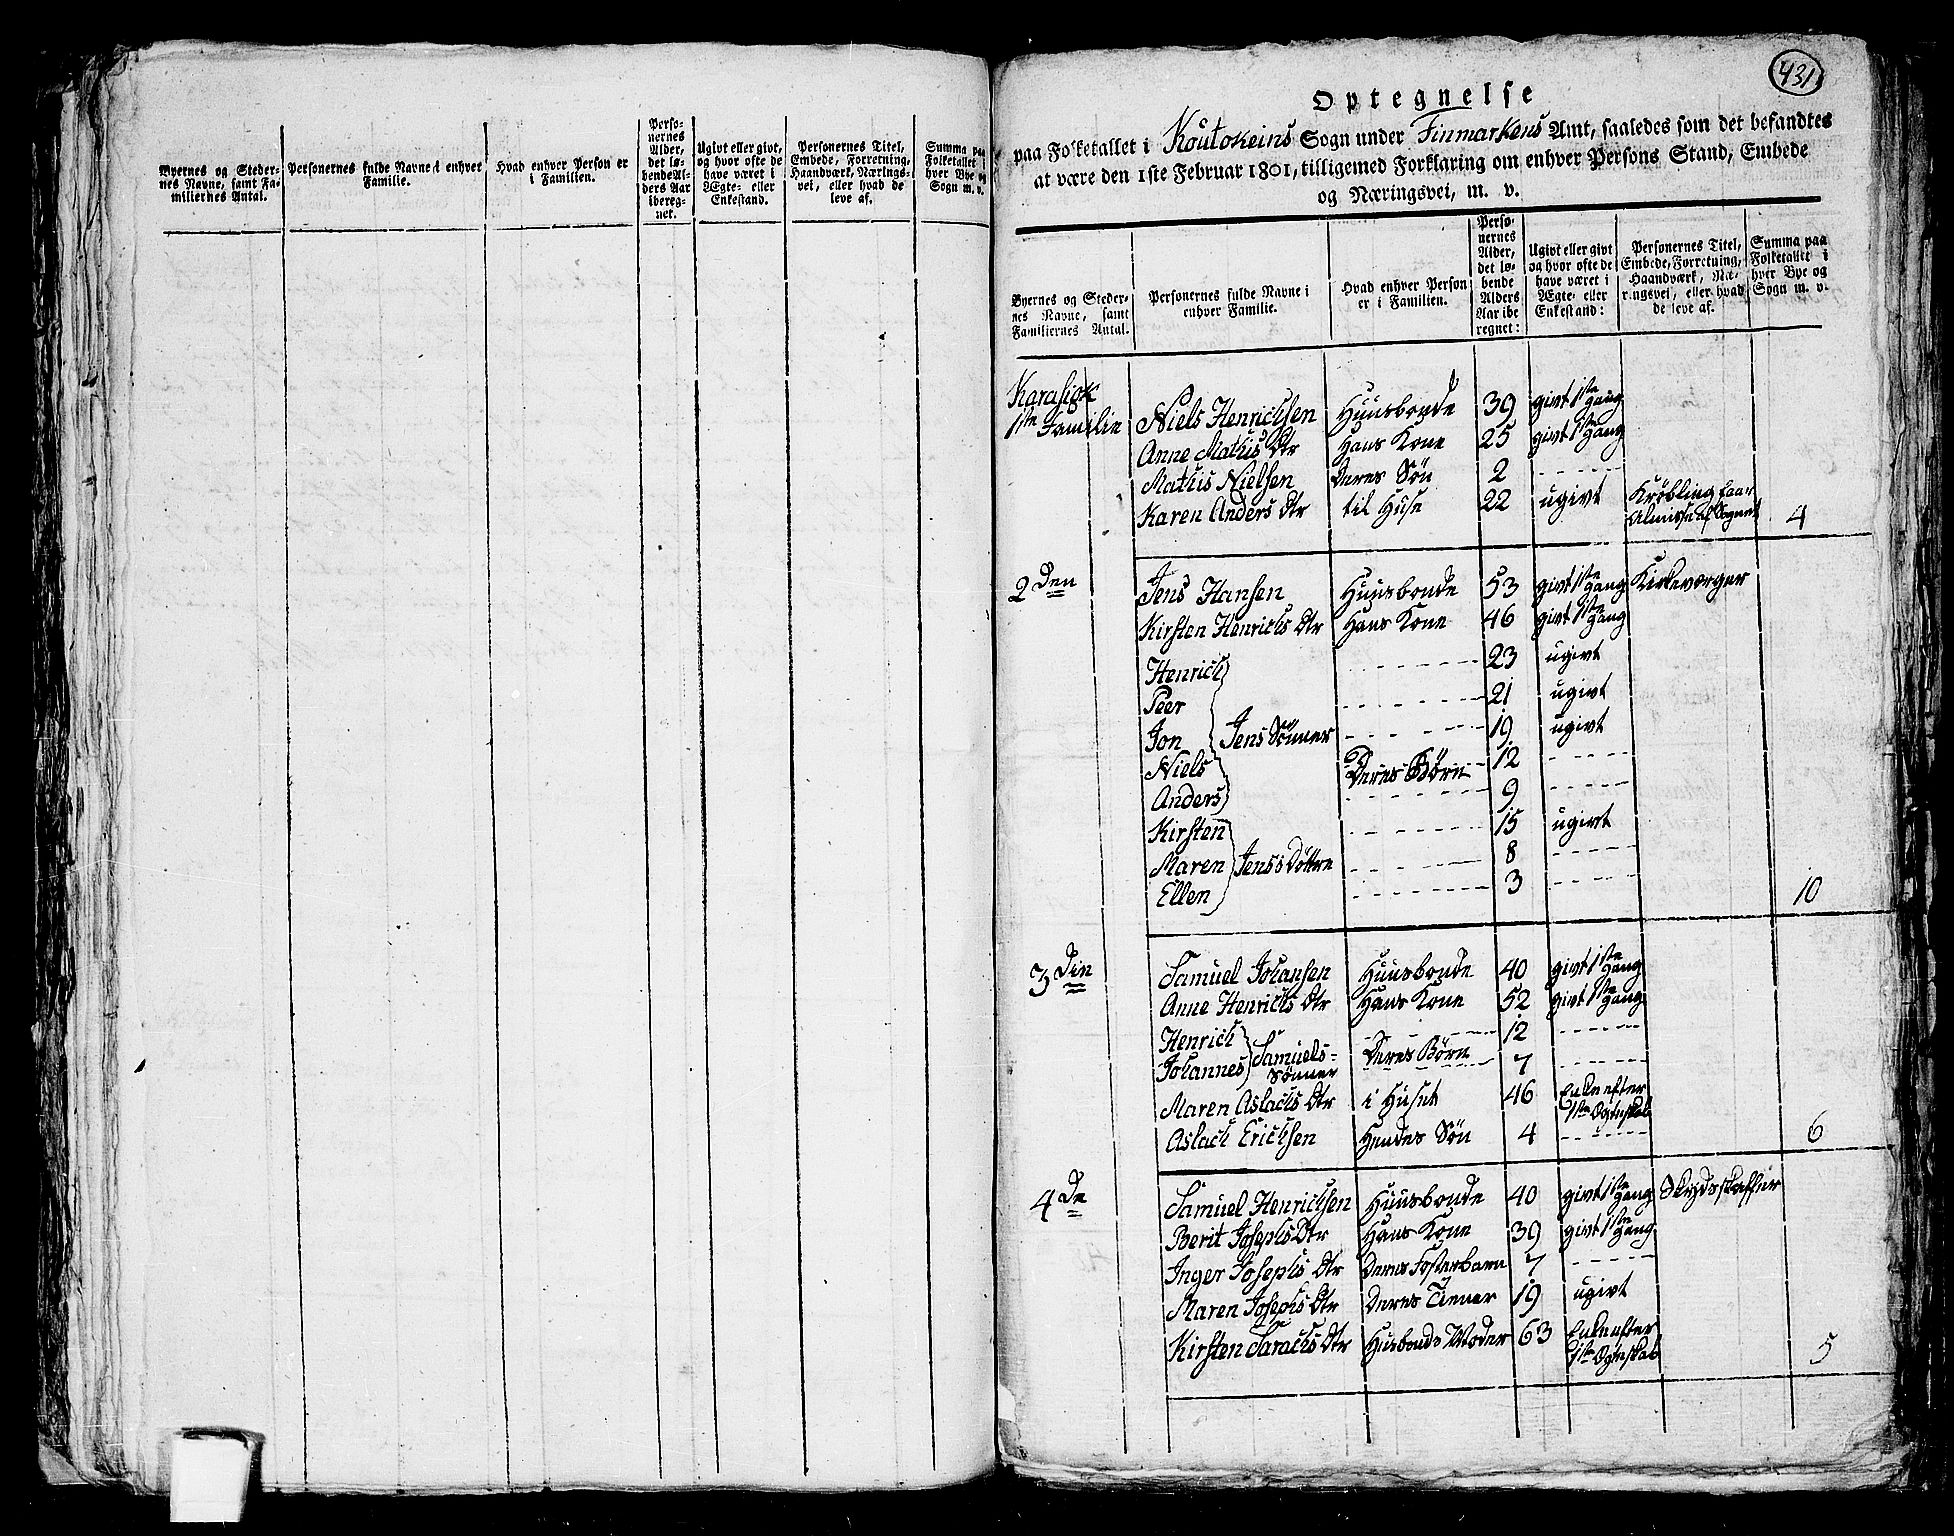 Byernes og Steder-
nes Navne, samt Fa-
miliernes Antal.
Personernes fulde Navne i enhver
Familie.
Hvad enhver Person er
i Familien.
Perso-
nernes
Alder,
det lø-
bende Al-
ders Aar
ibereg-
net.
Ugivt eller givt,
og hvor ofte de
have været i
Ægte- eller
Enkestand.
Personernes Titel,
Embede, Forretning,
Haandværk, Nærings-
vei, eller hvad de
leve af.
Summa paa
Folketallet i
hver Bye og
Sogn m. v.
431
Optegnelse
paa Folketallet i Koutokeins Sogn under Finmarkens Amt, saaledes som det befandtes
at være den 1ste Februar 1801, tilligemed Forklaring om enhver Persons Stand, Embede
og Næringsvei, m. v.
Byernes og Steder-
nes Navne, samt
Familiernes Antal.
Personernes fulde Navne i
enhver Familie.
Hvad enhver Person
er i Familien.
Perso-
nernes
Alder,
det lø-
bende
Alders
Aar ibe
regnet:
Ugivt eller givt
og hvor ofte de
have været i
Ægte- eller
Enkestand:
Personernes Titel,
Embede, Forretning,
Haandværk, Næ-
ringsvei, eller hvad
de leve af.
Summa paa
Folketallet i
hver Bye og
Sogn m. v.
Karasiok
1ste Familie Niels Henrichsen Huusbonde 39 givt 1ste gang
Anne Mathis Dtr Hans Kone 25 givt 1ste gang
Mathis Nielsen Deres Søn 2
Karen Anders Dtr til Huse 22 ugivt Krøbling faar
Almisse af Sognet 4
2den Jens Hansen Huusbonde 53 givt 1ste gang Kirkeværger
Kirsten Henrichs Dtr Hans Kone 46 givt 1ste gang
Henrich 23 ugivt
Peer 21 ugivt
Jon Jens Sönner 19 ugivt
Niels Deres Børn 12
Anders 9
Kirsten 15 ugivt
Maren Jenss Döttre 8
Ellen 3 10
3din Samuel Johansen Huusbonde 40 givt 1ste gang
Anne Henrichs Dtr Hans Kone 52 givt 1ste gang
Henrich 12
Johannes Samuels- Deres Børn 7
Sönner
Maren Aslachs Dtr i Huset 46 Enke efter
1ste Ægteskab
Aslach Erichsen Hendes Søn 4 6
4de Samuel Henrichsen Huusbonde 40 givt 1ste gang Skydsskaffer
Berit Josephs Dtr Hans Kone 39 givt 1ste gang
Inger Josephs Dtr Deres Fosterbarn 7
Maren Josephs Dtr Deres Tiener 19 ugivt
Kirsten Sarachs Dtr Husbonds Moder 63 Enke efter
1ste Ægteskab 5